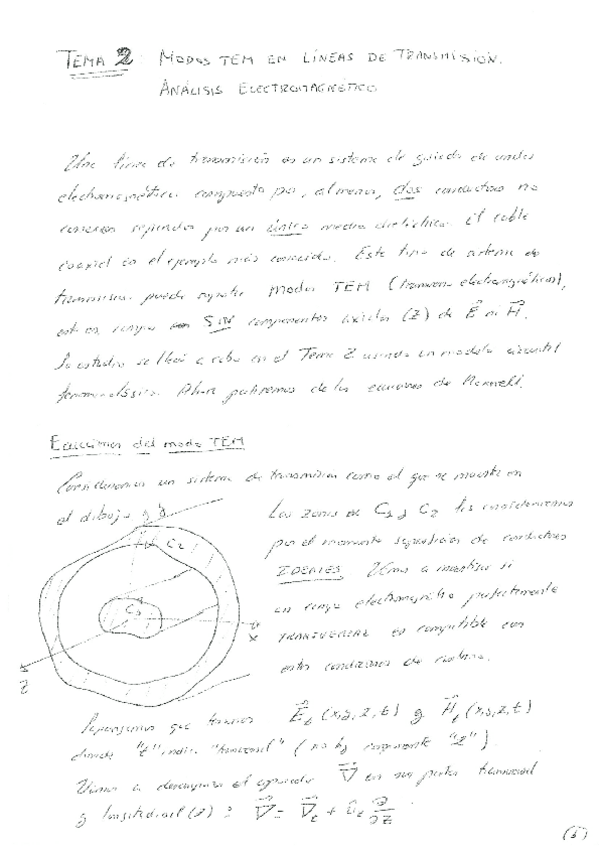 TEMA 2: MODOS TEM EN LÍNEAS DE TRANSMISIÓN.
ANÁLISIS ELECTROMAGNÉTICO
Una línea de transmisión es un sistema de guiado de ondas
electromagnéticas compuesto por, al menos, dos conductores no
conexos separados por un único medio dieléctrico. El cable
coaxial es el ejemplo más conocido. Este tipo de sistema de
transmisión puede soportar Modos TEM (transverso electromagnéticos),
esto es, campos SIN componentes axiales (Z) de E⃗ ni H⃗.
Su estudio se llevó a cabo en el Tema 2 usando un modelo circuital
fenomenológico. Ahora partiremos de las ecuaciones de Maxwell.
Ecuaciones del modo TEM
Consideremos un sistema de transmisión como el que se muestra en
el dibujo
y
C2
C1
x
z
Las zonas de C1 y C2 las consideraremos
por el momento superficies de conductores
IDEALES. Vamos a investigar si
un campo electromagnético perfectamente
TRANSVERSAL es compatible con
estas condiciones de contorno.
Supongamos que tenemos E⃗t (x,y,z,t) y H⃗t (x,y,z,t)
donde "t" indica "transversal" (no hay componente "z").
Vamos a descomponer el operador ∇⃗ en su parte transversal
y longitudinal (z): ∇⃗ = ∇⃗t + ûz ∂/∂z
(1)